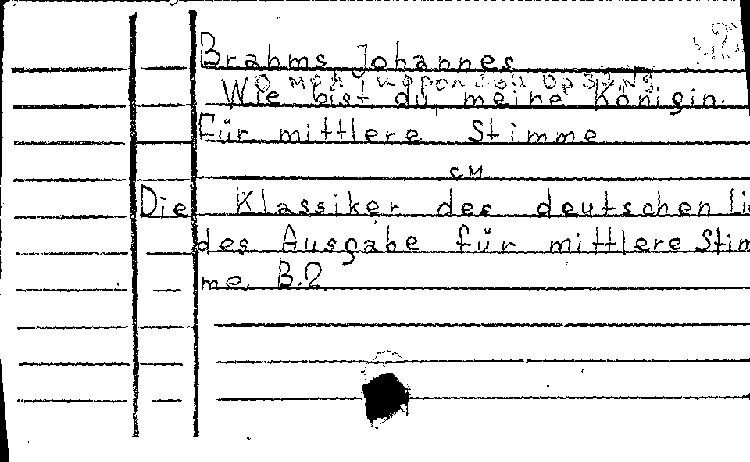 Brahms Johannes
Wie bist du meine Königin
Für mittlere Stimme
см
Die Klassiker des deutschen Lie
des Ausgabe für mittlere Stim
me B.2